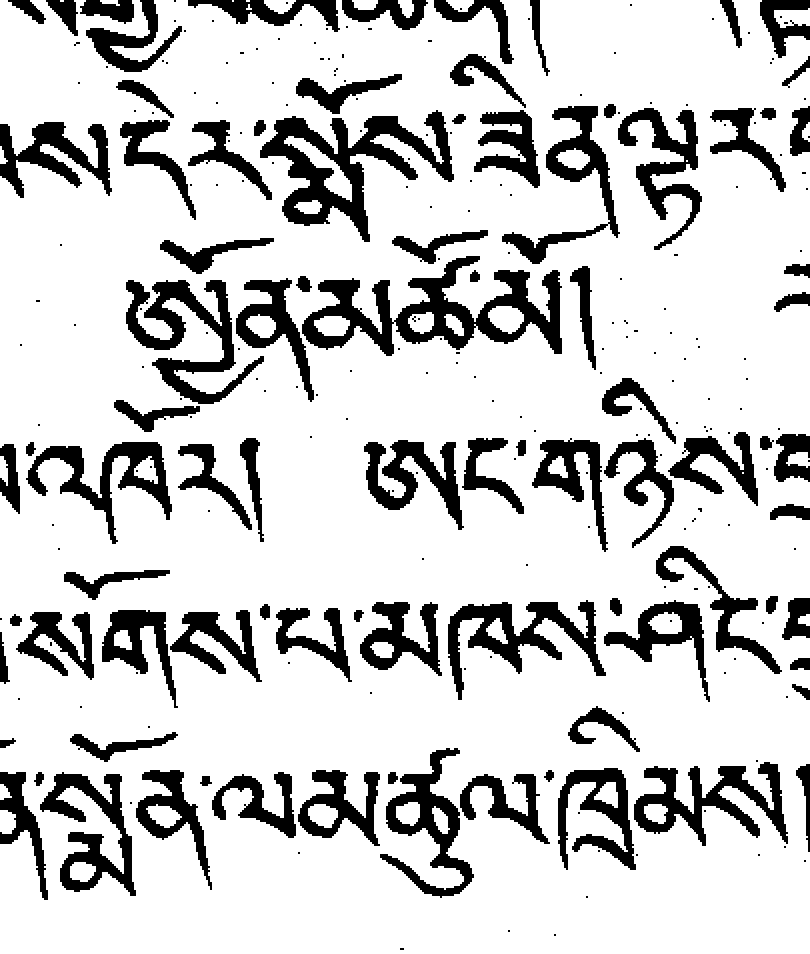 ས་དེར་སྨོས་ཟིན་ལྟར་
ཨྱོན་མཚོ་མོ།
ལ་ཁོར། ཨང་གཉིས་
སོགས་པ་མཁས་ཤིང་
སྨོན་ལམ་ཚུལ་ཁྲིམས།